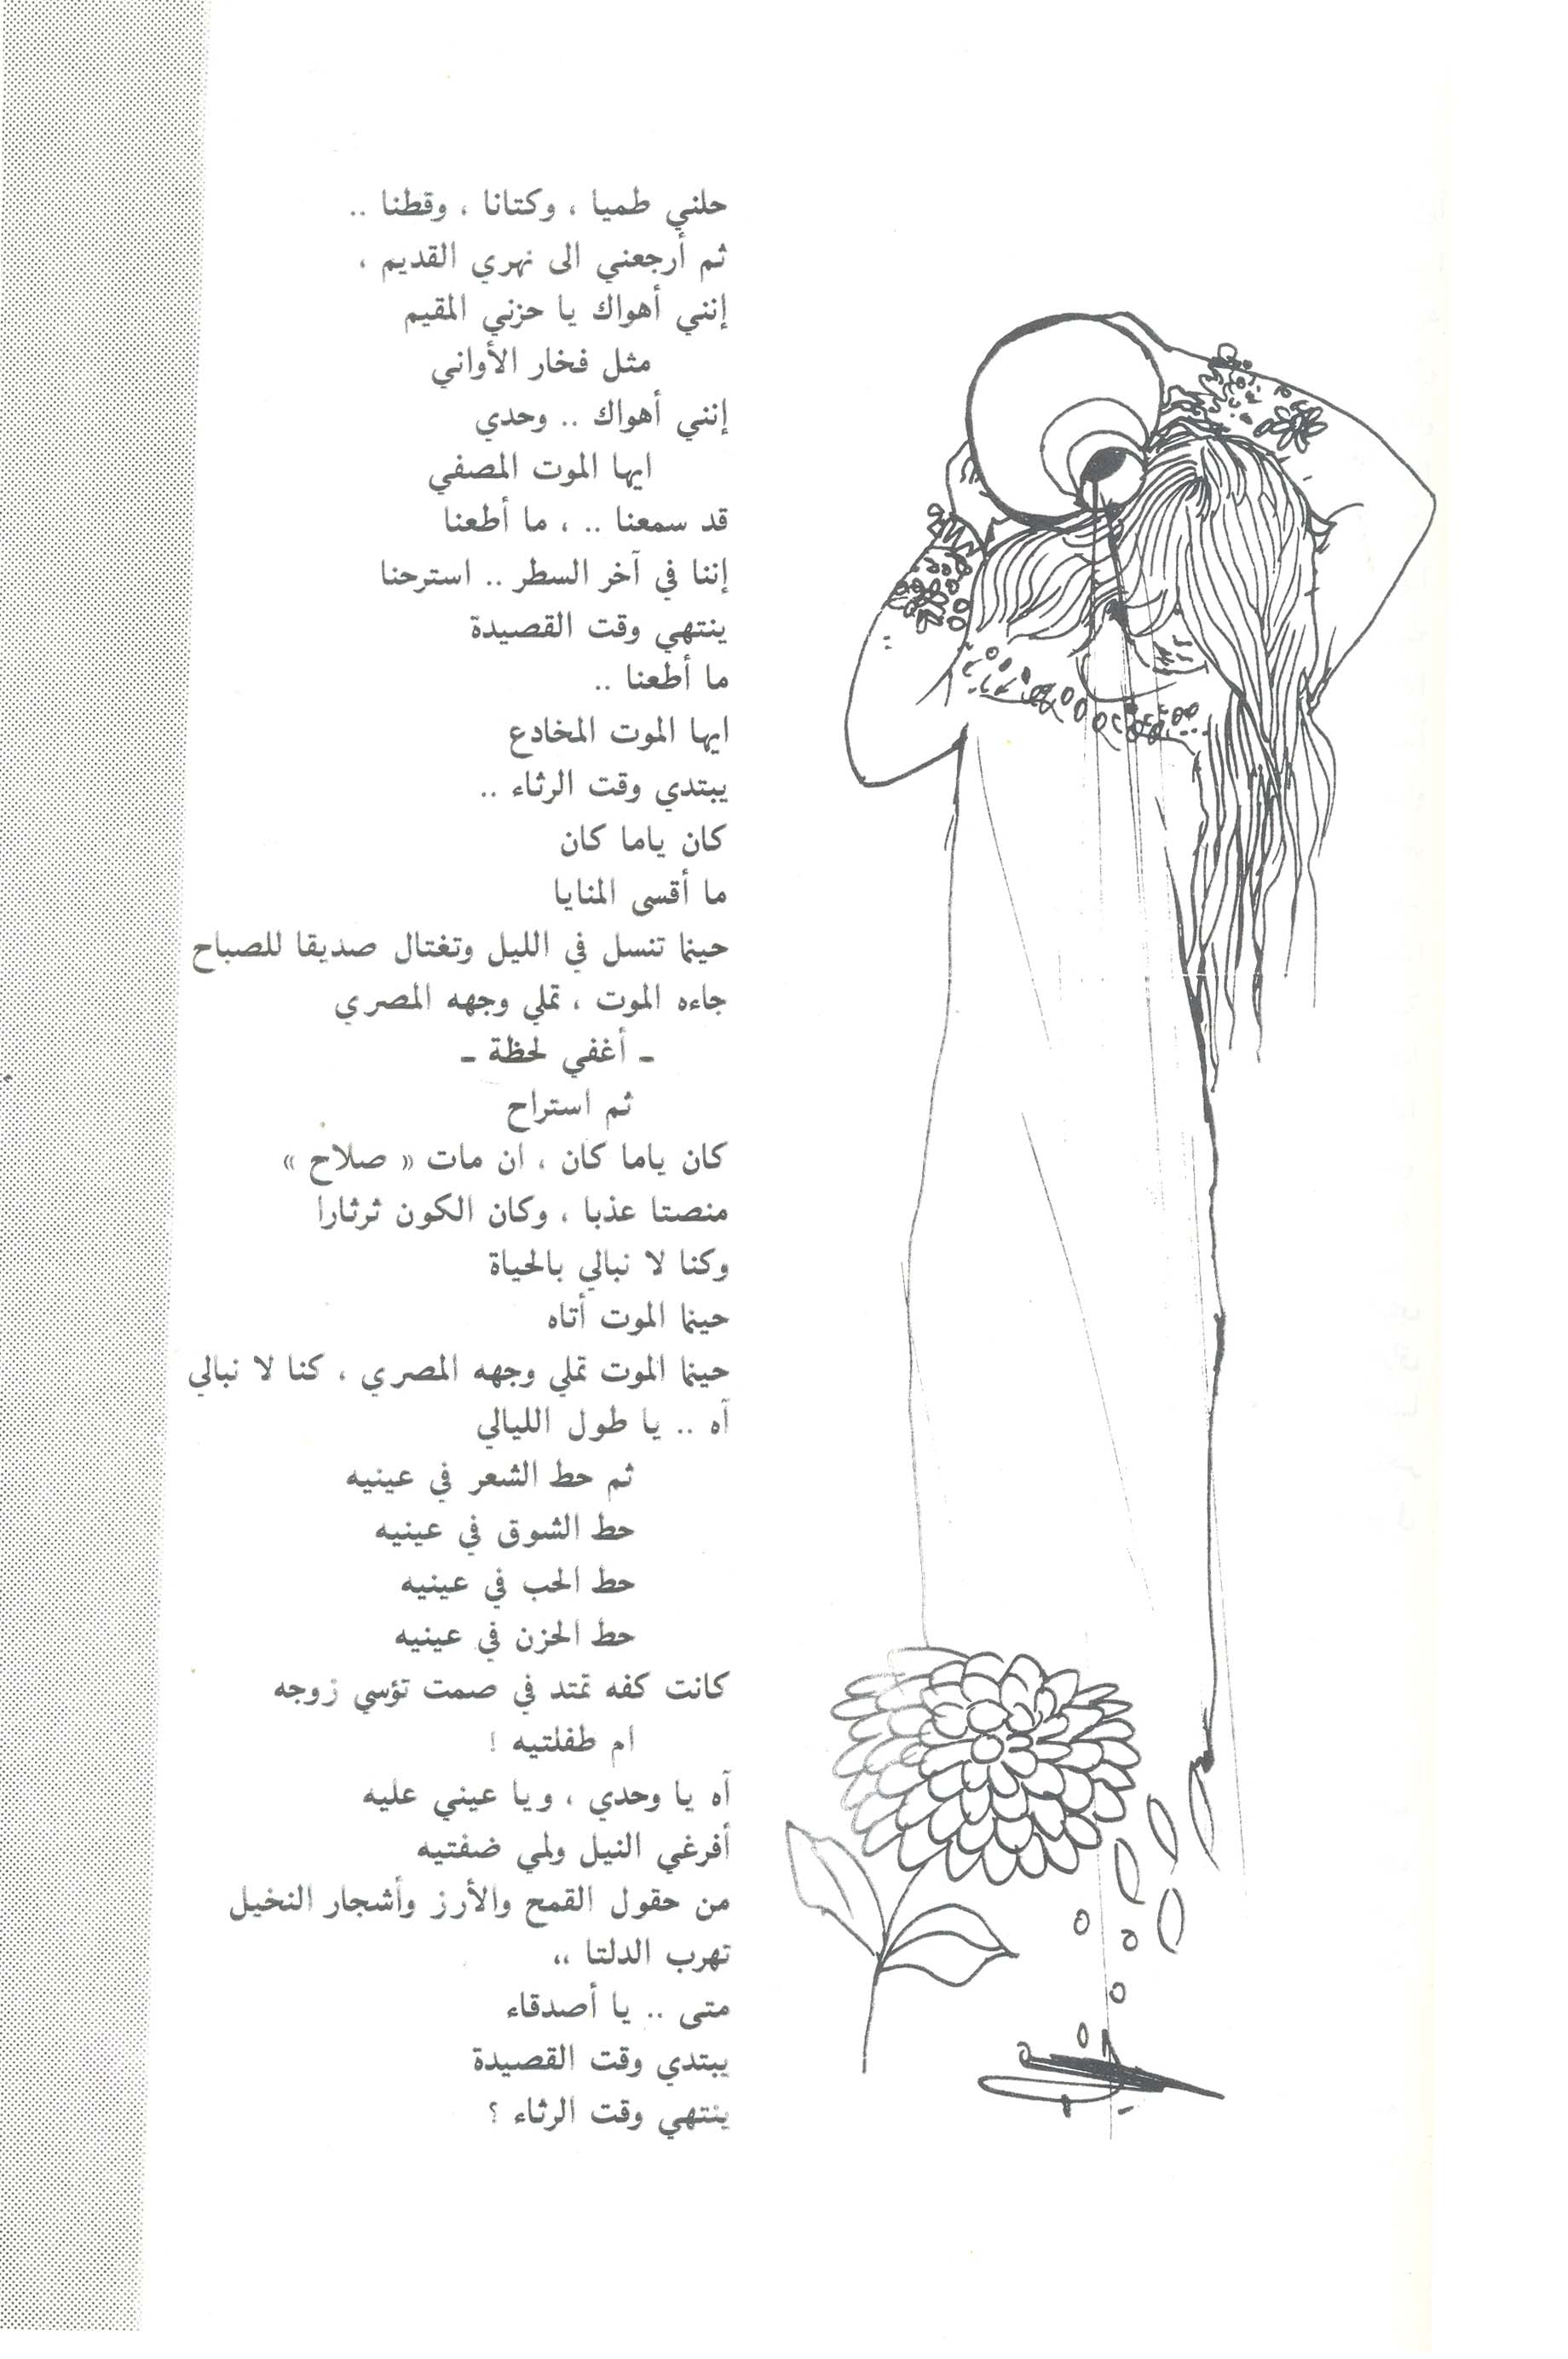 حلني طميا ، وكتانا ، وقطنا ..
ثم أرجعني الى نهري القديم ،
إنني أهواك يا حزني المقيم
مثل فخار الأواني
إنني أهواك .. وحدي
ايها الموت المصفي
قد سمعنا .. ، ما أطعنا
إننا في آخر السطر .. استرحنا
ينتهي وقت القصيدة
ما أطعنا ..
ايها الموت المخادع
يبتدي وقت الرثاء ..
كان ياما كان
ما أقسى المنايا
حينما تنسل في الليل وتغتال صديقا للصباح
جاءه الموت ، تملي وجهه المصري
ـ أغفي لحظة ـ
ثم استراح
كان ياما كان ، ان مات « صلاح »
منصتا عذبا ، وكان الكون ثرثارا
وكنا لا نبالي بالحياة
حينما الموت أتاه
حينما الموت تملي وجهه المصري ، كنا لا نبالي
آه .. يا طول الليالي
ثم حط الشعر في عينيه
حط الشوق في عينيه
حط الحب في عينيه
حط الحزن في عينيه
كانت كفه تمتد في صمت تؤسي زوجه
ام طفلتيه !
آه يا وحدي ، ويا عيني عليه
أفرغي النيل ولمي ضفتيه
من حقول القمح والأرز وأشجار النخيل
تهرب الدلتا ،،
متى .. يا أصدقاء
يبتدي وقت القصيدة
ينتهي وقت الرثاء ؟